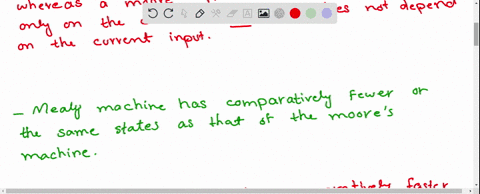 whereas a
only on the es not depend
on the current input.
- Mealy machine has comparatively fewer or
the same states as that of the moore's
machine.
faster